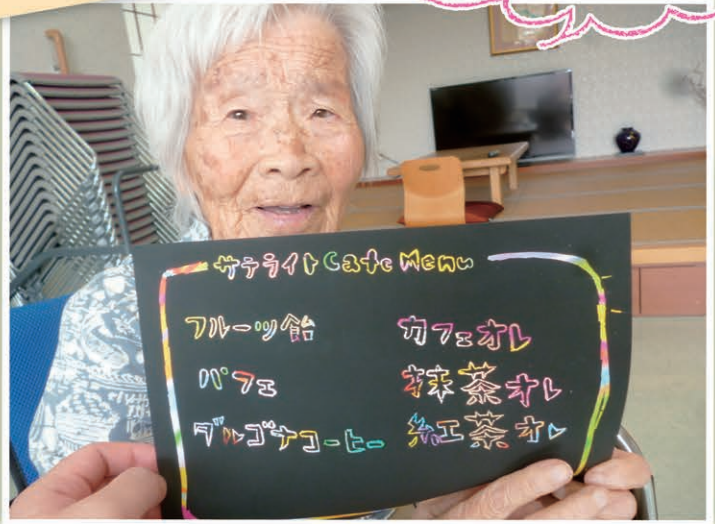 サテライト Cafe Menu
フルーツ飴
パフェ
ダルゴナコーヒー
カフェオレ
抹茶オレ
紅茶オレ